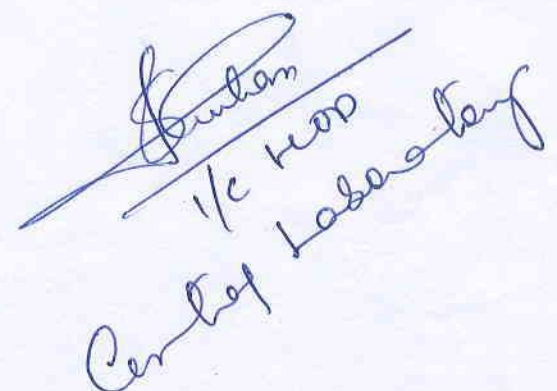 I/c HOD
Central Laboratory